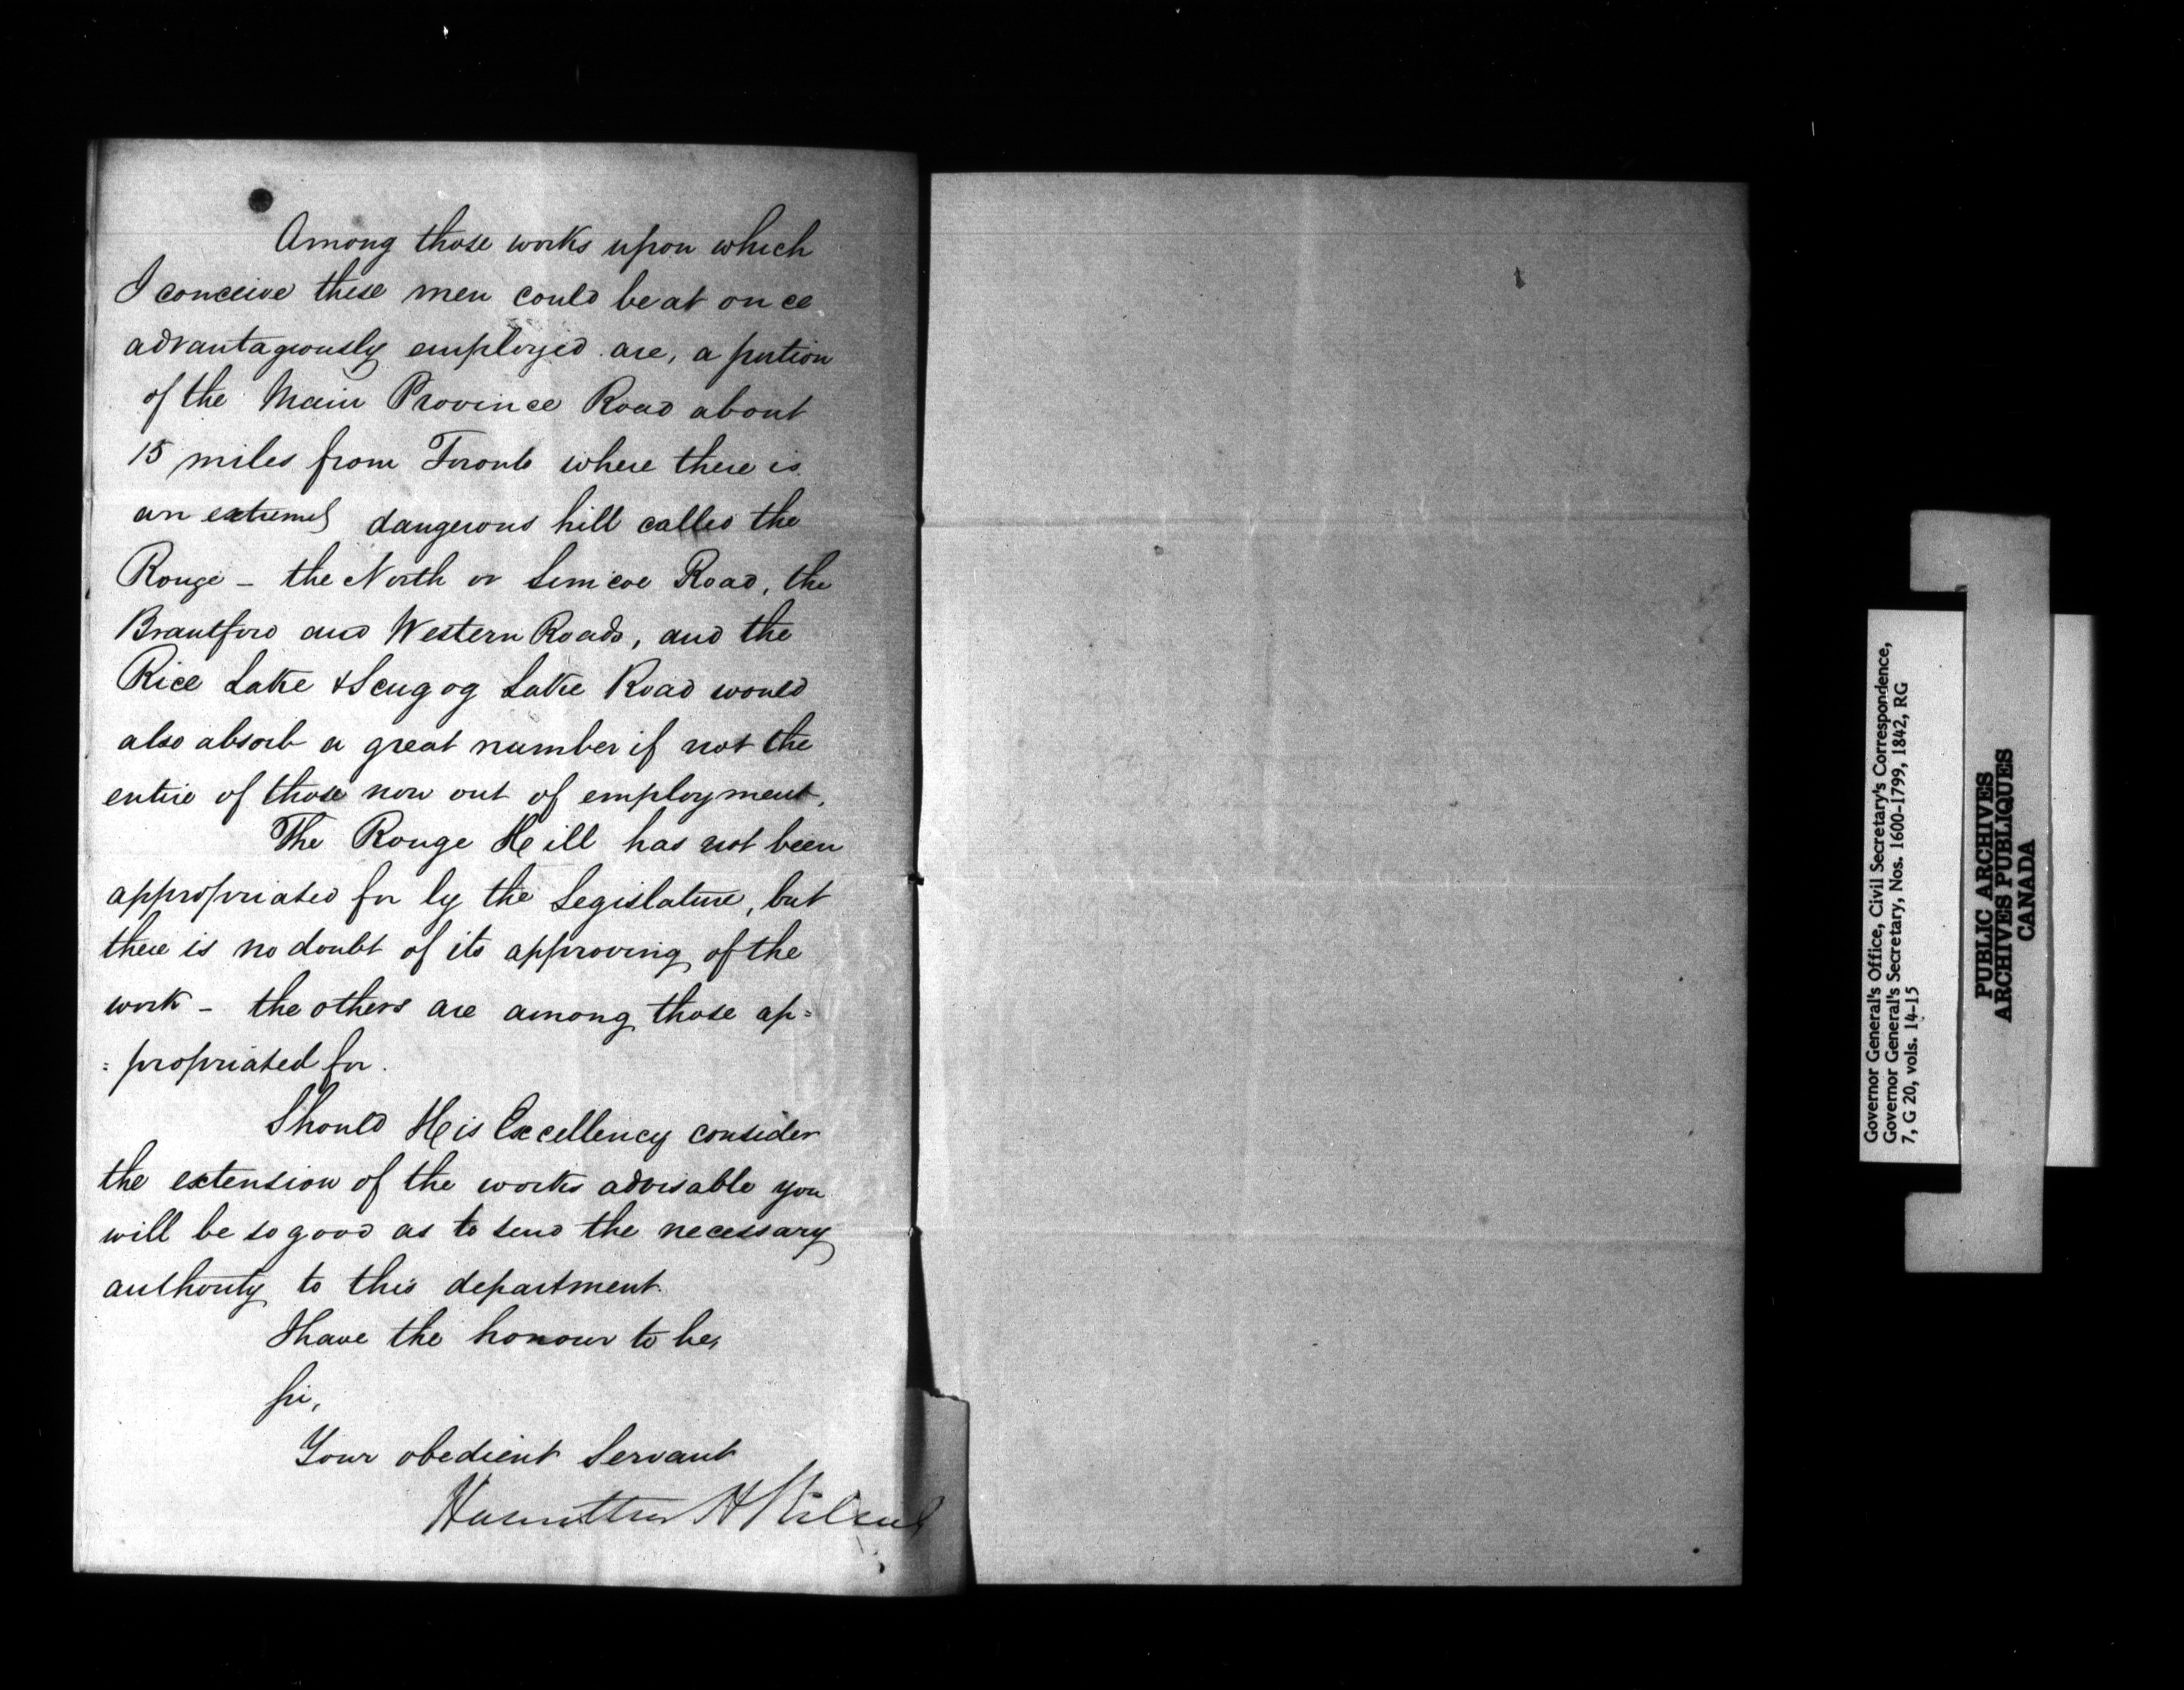 Among those works upon which
I conceive these men could be at once
advantageously employed are, a portion
of the Main Province Road about
15 miles from Toronto where there is
an extremely dangerous hill called the
Rouge - the North or Simcoe Road, the
Brantford and Western Roads, and the
Rice Lake & Scugog Lake Road would
also absorb a great number if not the
entire of those now out of employment.
The Rouge Hill has not been
appropriated for by the Legislature, but
there is no doubt of its approving of the
work - the others are among those ap=
=propriated for.
Should His Excellency consider
the extension of the works advisable you
will be so good as to send the necessary
authority to this department.
I have the honour to be,
Sir,
Your obedient Servant
Hamilton H Killaly
Governor General's Office, Civil Secretary's Correspondence,
Governor General's Secretary, Nos. 1600-1799, 1842, RG
7, G 20, vols. 14-15
PUBLIC ARCHIVES
ARCHIVES PUBLIQUES
CANADA